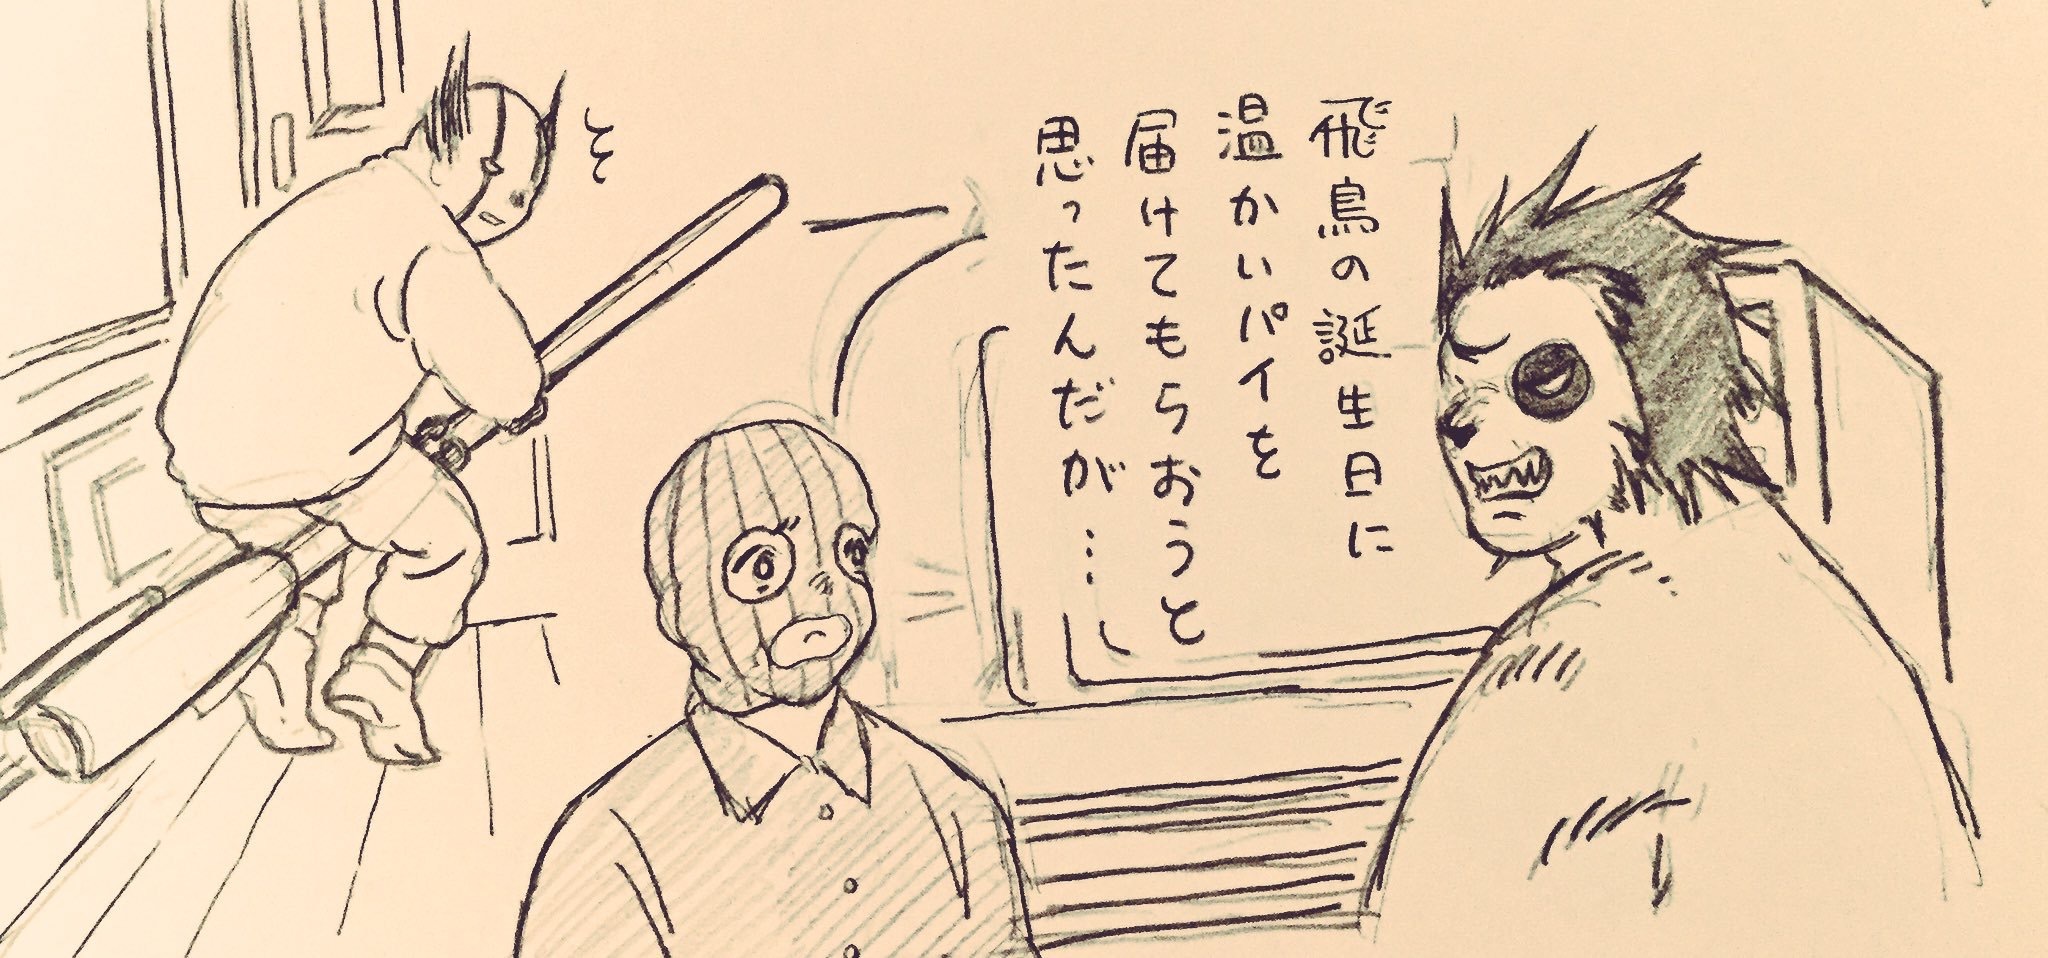 飛鳥の誕生日に
温かいパイを
届けてもらおうと
思ったんだが…
そ